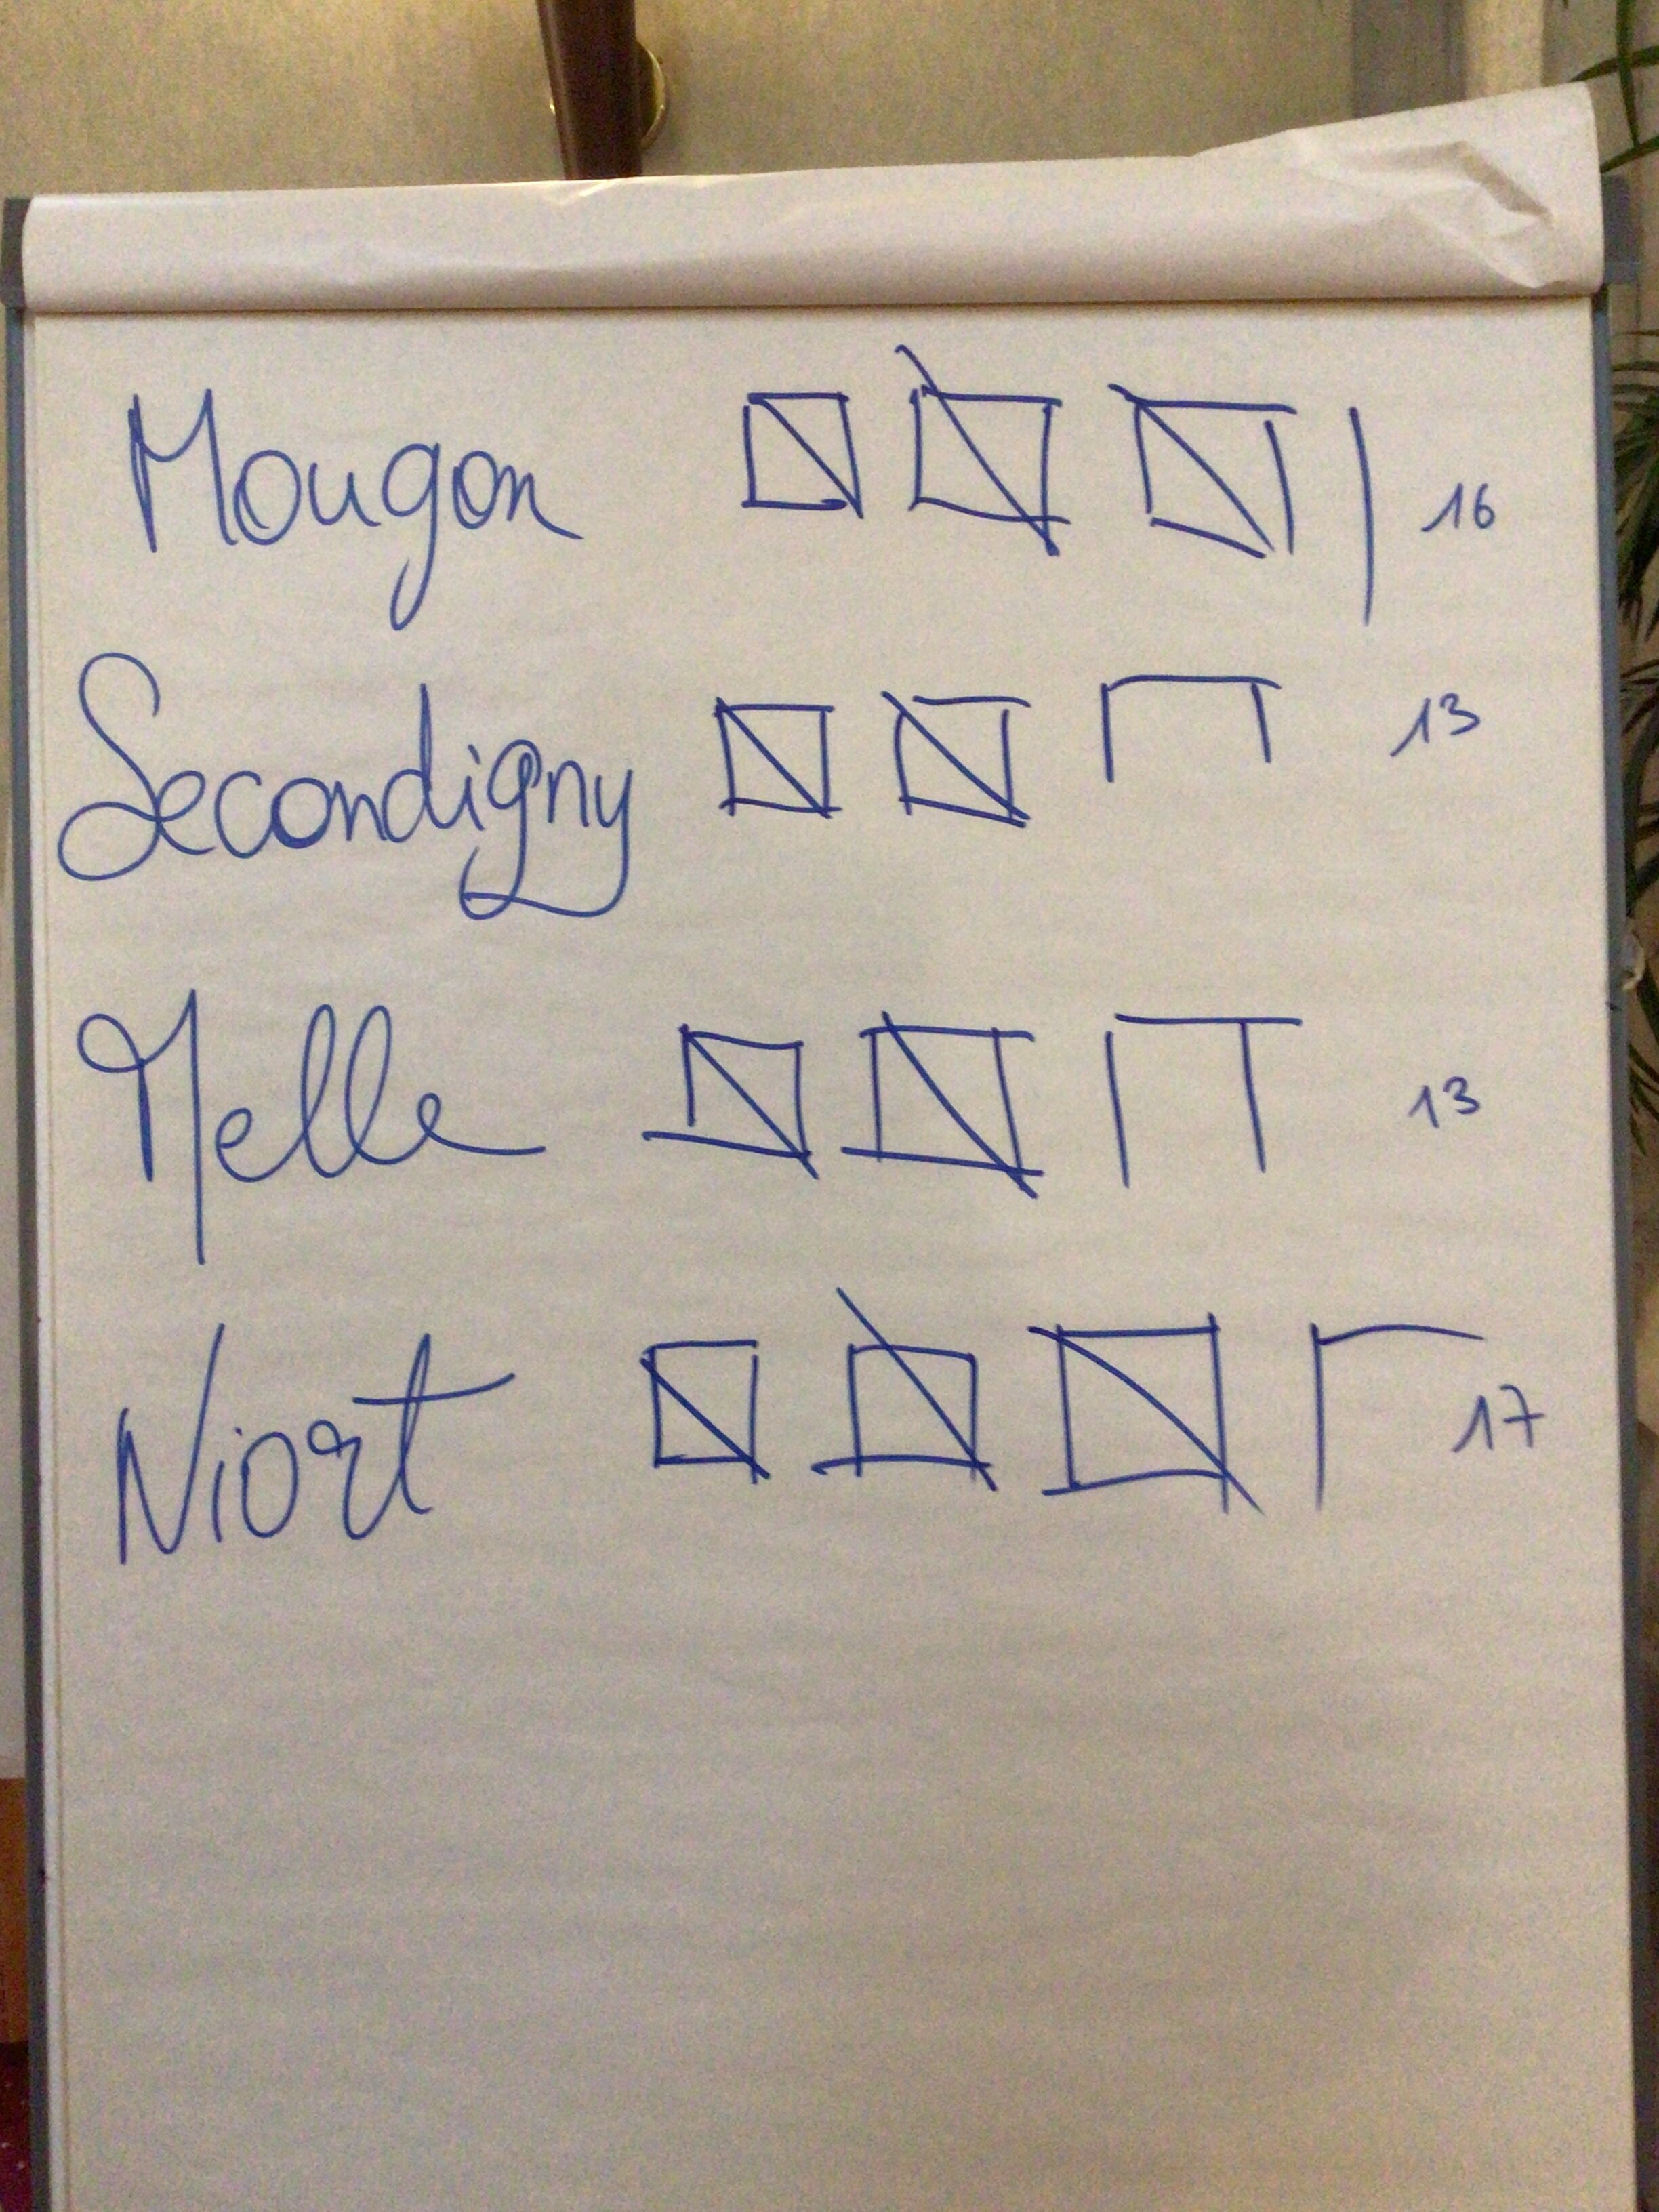 Mougon 16
Secondigny 13
Melle 13
Niort 17